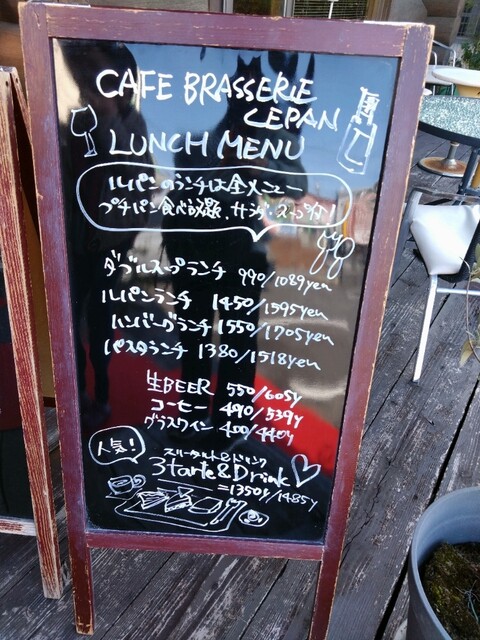 CAFE BRASSERIE
LEPAN
LUNCH MENU
ルパンのランチは全メニュー
プチパン食べ放題、サラダ・スープ付!
ダブルスープランチ 990/1089yen
ルパンランチ 1450/1595yen
ハンバーグランチ 1550/1705yen
パスタランチ 1380/1518yen
生BEER 550/605y
コーヒー 490/539y
グラスワイン 400/440y
人気!
スリータルト&ドリンク
3tarte&Drink
=1350y/1485y